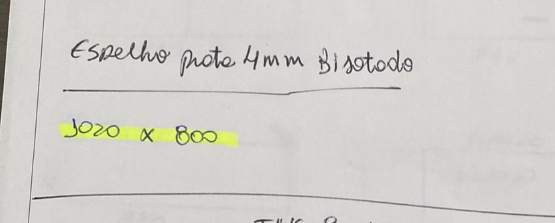 Espelho prata 4mm Bisotado
1020 x 800